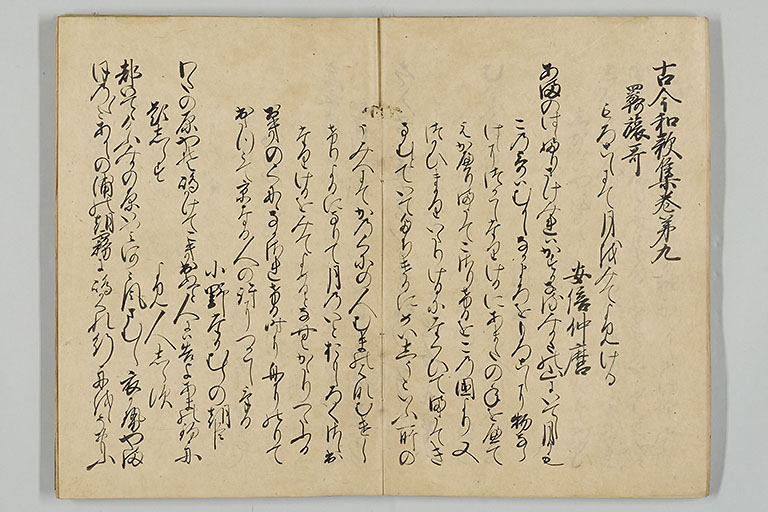 古今和歌集巻第九
羇旅哥
もろこしにて月をみてよみける
安倍仲麿
あまのはらふりさけみれはかすかなるみかさの山にいてし月かも
このうたはむかしなかまろをもろこしに物なら
はしにつかはしたりけるにあまたの年をへて
えかへりまうてこさりけるをこの国より又
つかひまかりいたりけるにたくひてまうてき
なむとていてたちけるにめいしうといふ所の
うみへにてかのくにの人むまのはなむけし
けりよるになりて月のいとおもしろくさし出
たりけるをみてよめるとなむかたりつたふる
おきのくにになかされける時に舟にのりて
出たつとて京なる人の許につかはしける
小野たかむらの朝臣
わたの原やそ嶋かけてこき出ぬと人には告よあまの釣舟
題しらす
よみ人しらす
都いてゝけふみかの原いつみ河かは風さむし衣かせ山
ほの〳〵とあかしの浦の朝霧に嶋かくれ行舟をしそおもふ